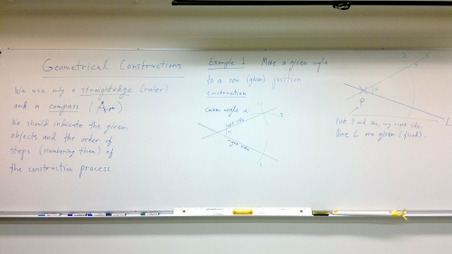 Geometrical Constructions
We use only a straightedge (ruler)
and a compass ( )
We should indicate the given
objects and the order of
steps (numbering them) of
the construction process.
Example 1 Move a given angle
to a new (given) position
construction
Given angle α
Point P and the
line L are given (fixed).
P
L